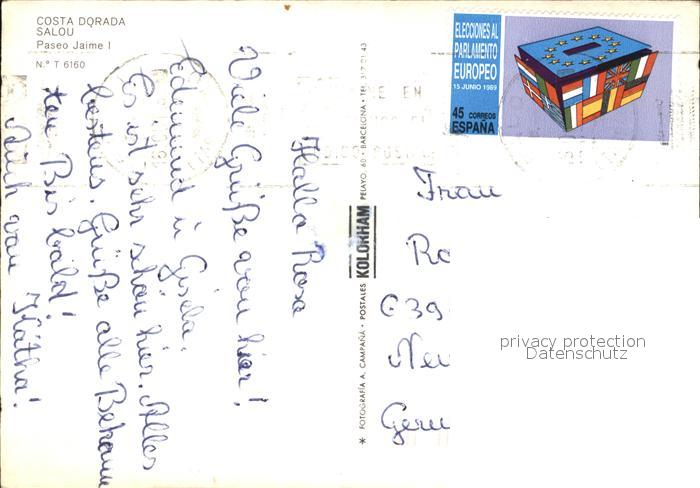 COSTA DORADA
SALOU
Paseo Jaime I
N.º T 6160
Hallo Rosa
Viele Grüße von hier!
Edmund u Gisela.
Es ist sehr schön hier. Alles
bestens. Grüße alle Bekann
ten Bis bald!
Auch von Kätha!
* FOTOGRAFIA A. CAMPAÑA • POSTALES KOLORHAM PELAYO, 60 • BARCELONA • TEL. 317 21 43
ELECCIONES AL
PARLAMENTO
EUROPEO
15 JUNIO 1989
45 CORREOS
ESPAÑA
Frau
Ro
639
Neu
Germ
privacy protection
Datenschutz